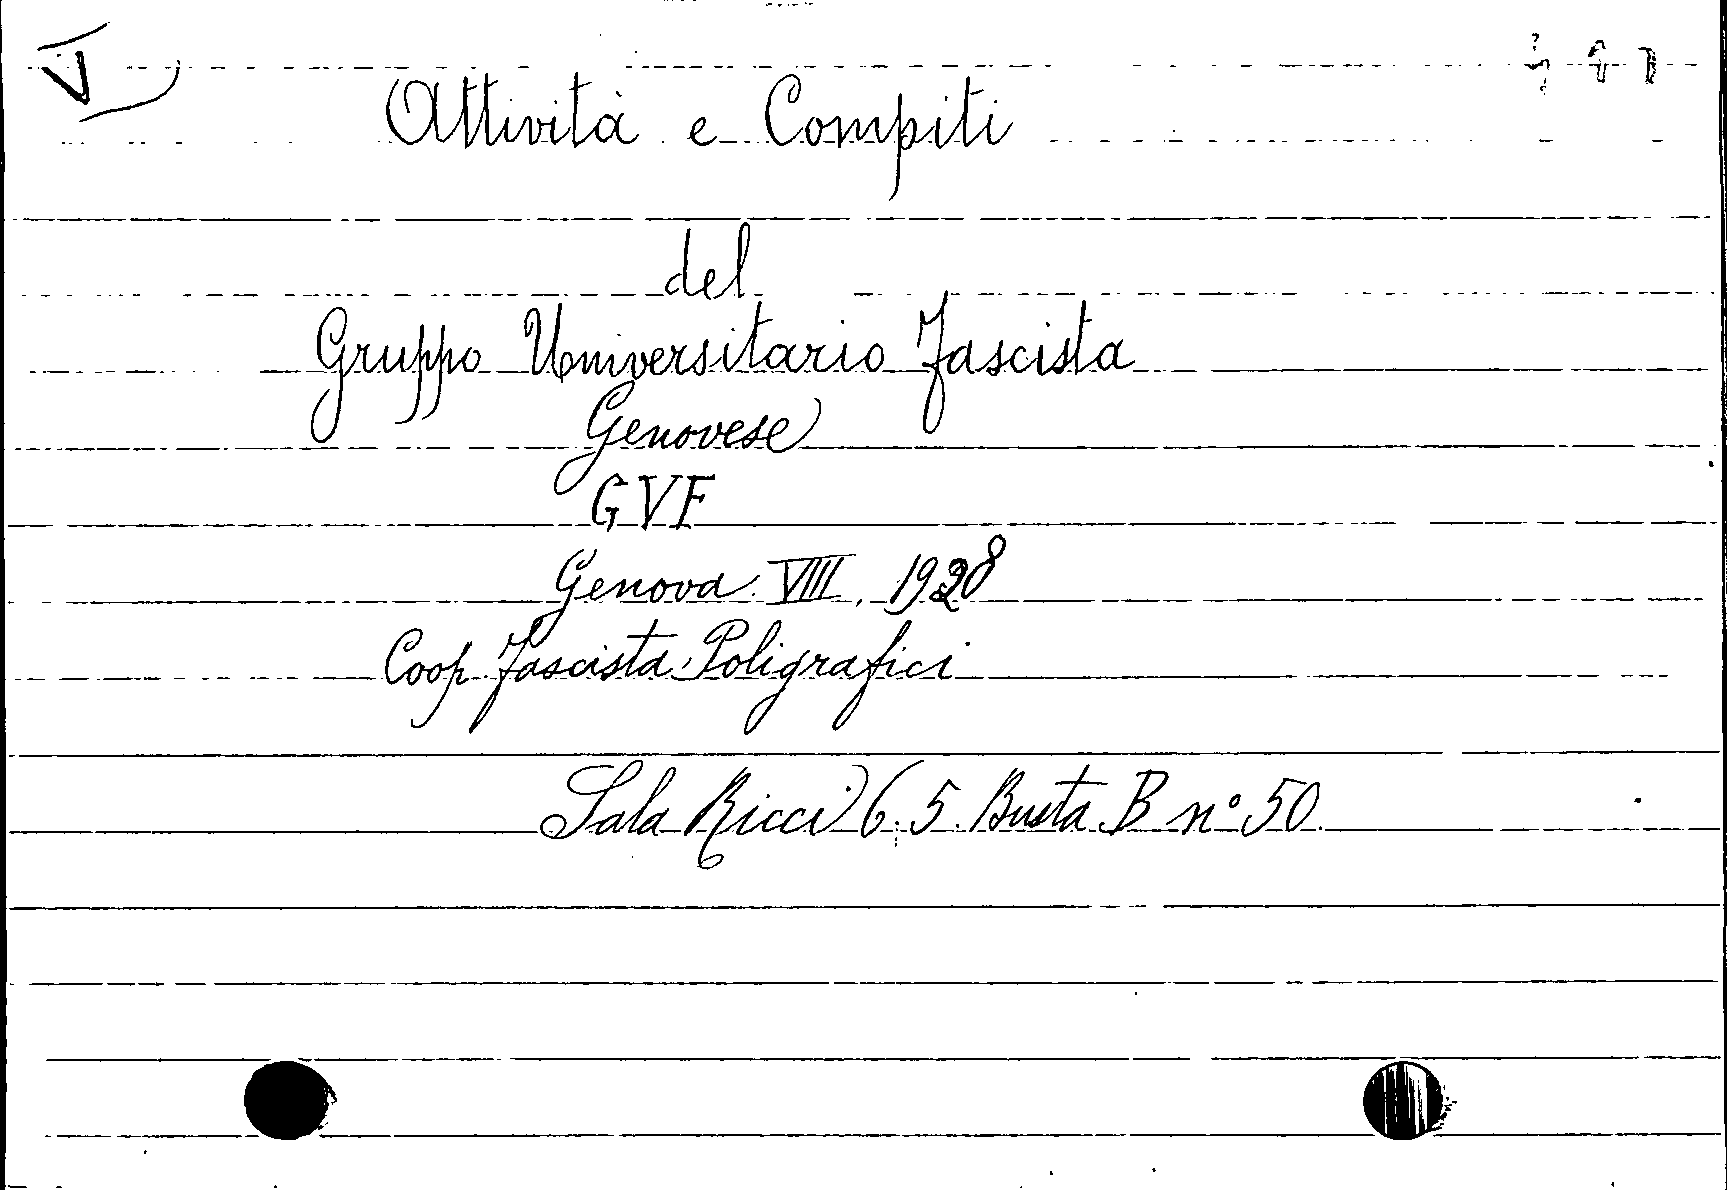 V
Attività e Compiti
del
Gruppo Universitario Fascista
Genovese
GVF
Genova VIII, 1928
Coop Fascista Poligrafici
Sala Ricci 6.5. Busta B n° 50